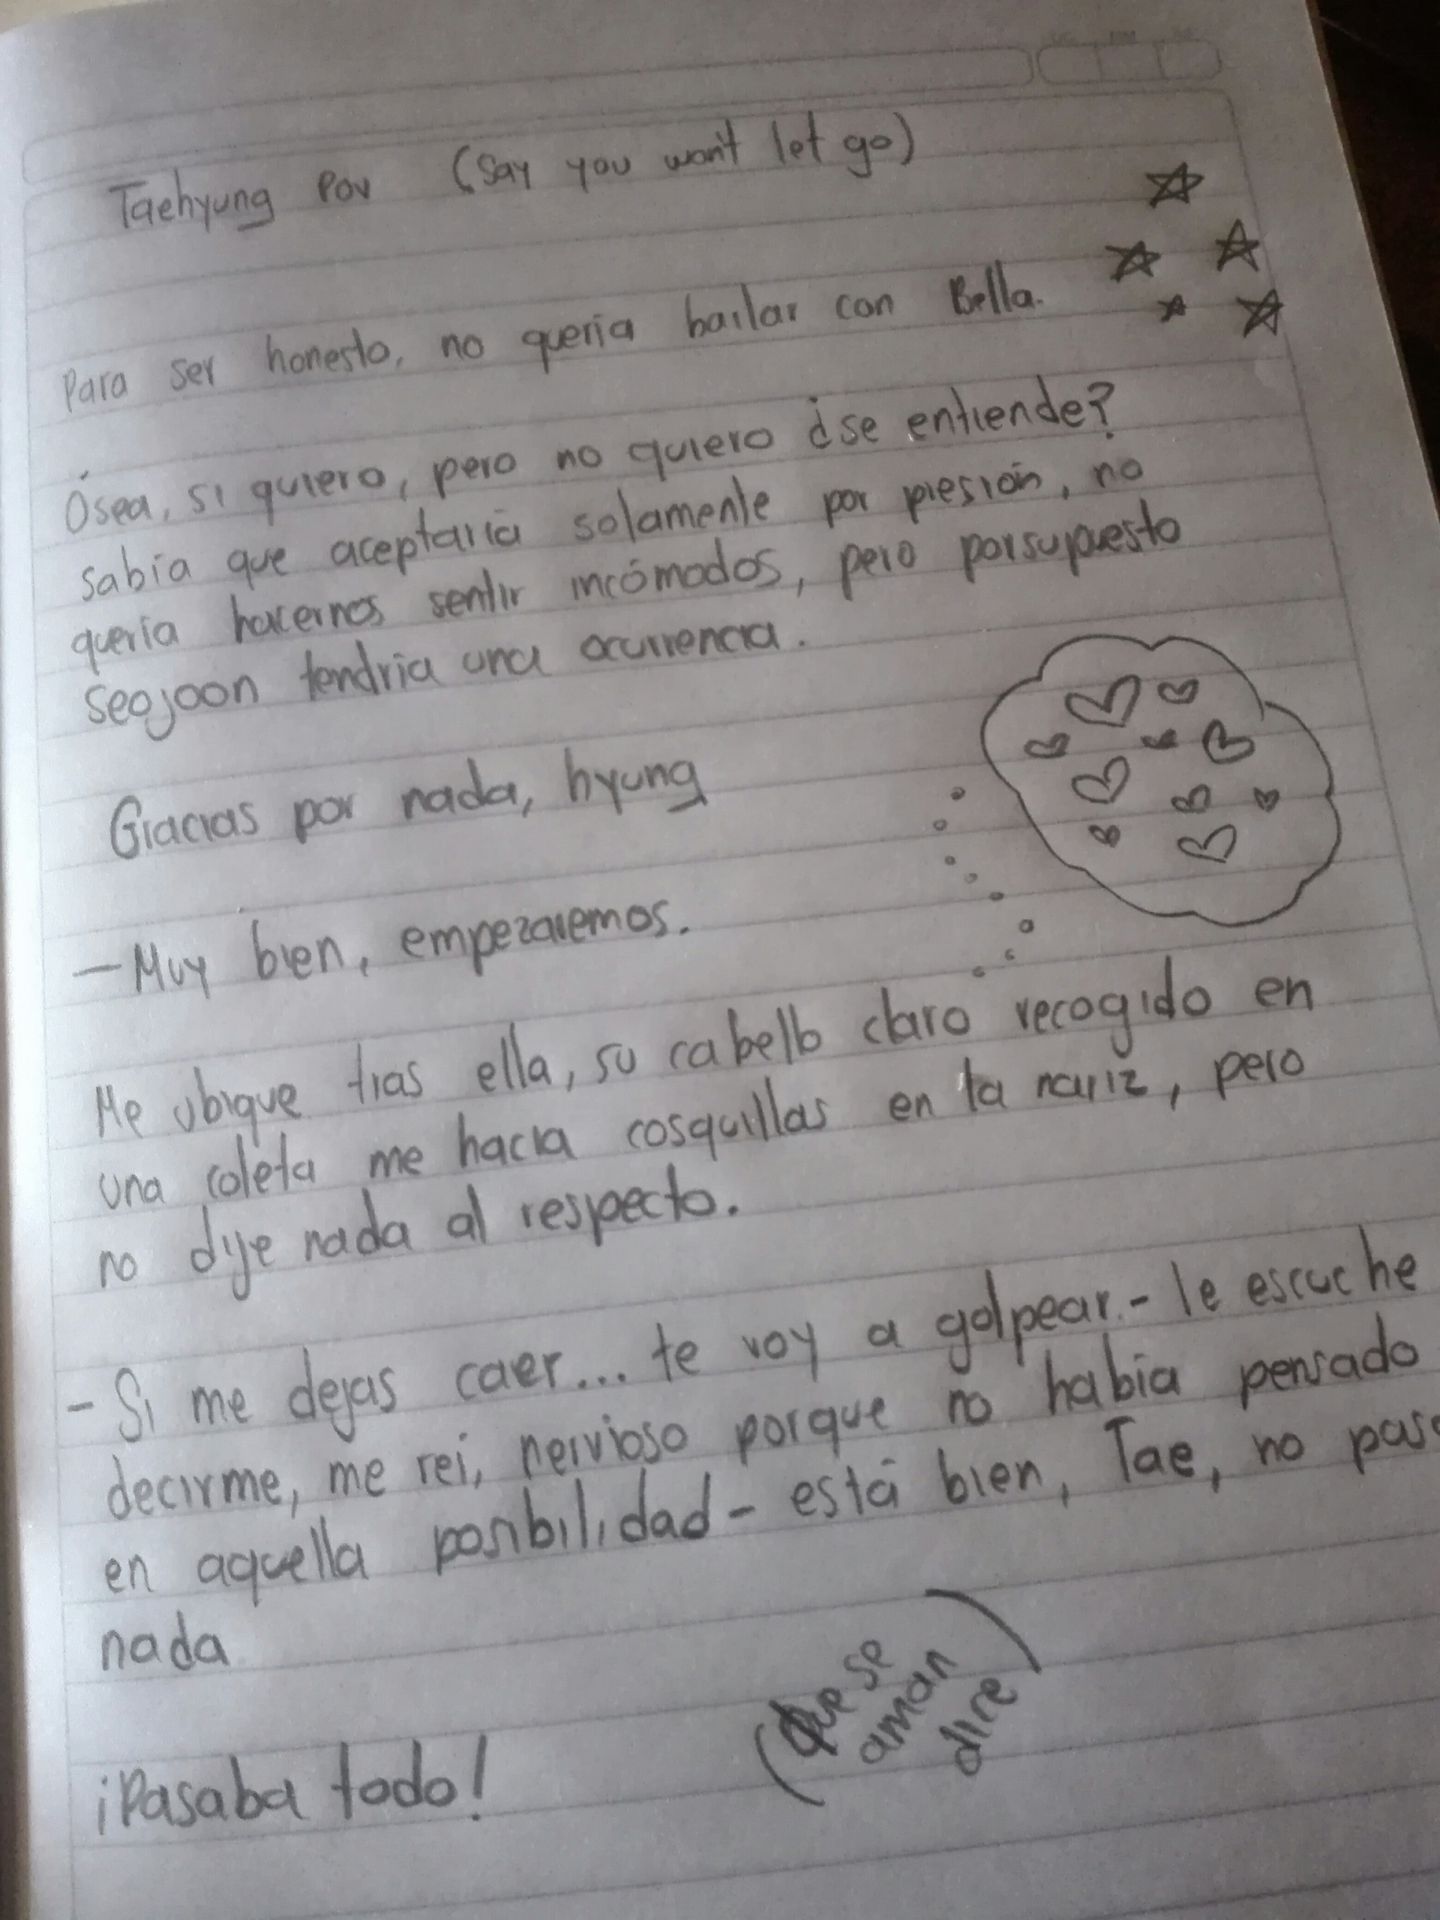 Taehyung Pov (Say you won't let go)
Para ser honesto, no quería bailar con Bella.
Ósea, si quiero, pero no quiero ¿se entiende?
sabía que aceptaría solamente por presión, no
quería hacernos sentir incómodos, pero porsupuesto
seojoon tendría una ocurrencia.
Gracias por nada, hyung
—Muy bien, empezaremos.
Me ubique tras ella, su cabello claro recogido en
una coleta me hacia cosquillas en la nariz, pero
no dije nada al respecto.
- Si me dejas caer... te voy a golpear.- le escuche
decirme, me rei, nervioso porque no había pensado
en aquella posibilidad - está bien, Tae, no pasa
nada
¡Pasaba todo!
(Que se
aman
dice)